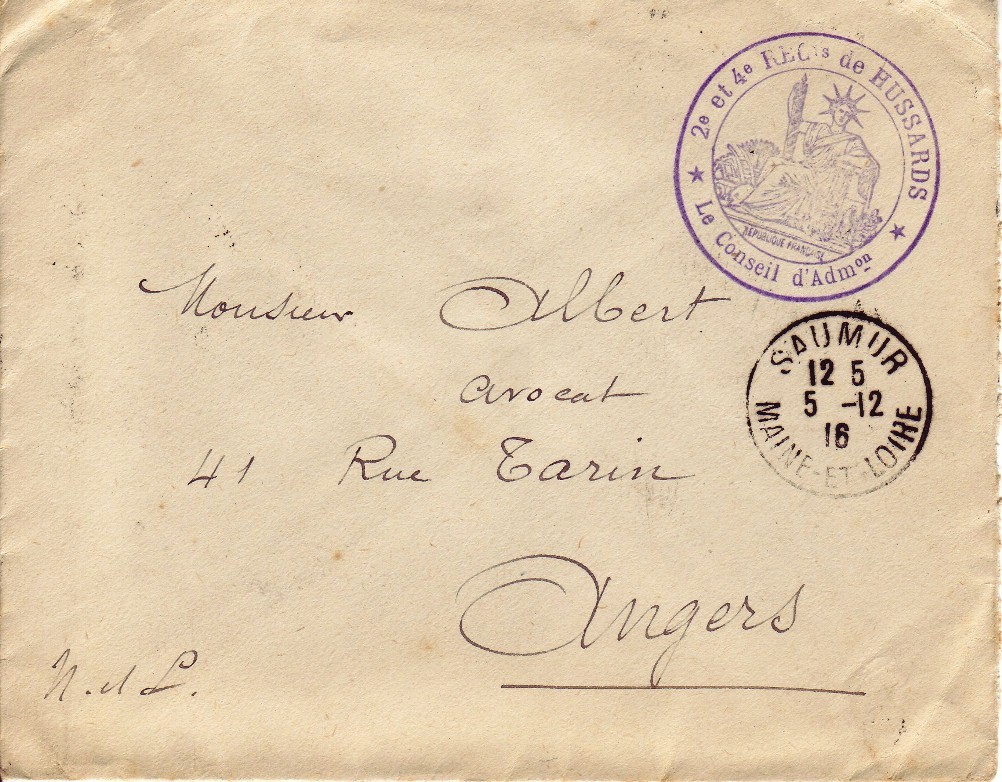 2e et 4e REGts de HUSSARDS
RÉPUBLIQUE FRANÇAISE
★ Le Conseil d'Admon ★
Monsieur Albert
SAUMUR
12 5
5 -12
16
MAINE-ET-LOIRE
avocat
41 Rue Tarin
Angers
M. et L.